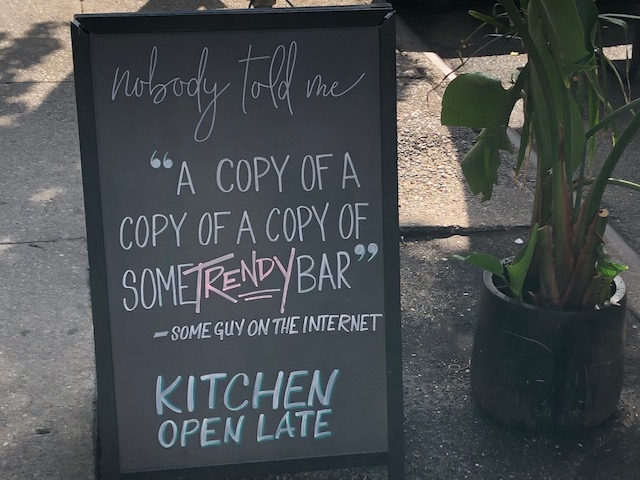 nobody told me
“A COPY OF A
COPY OF A COPY OF
SOME TRENDY BAR”
– SOME GUY ON THE INTERNET
KITCHEN
OPEN LATE